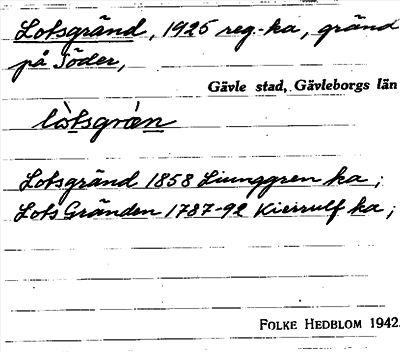 Lotsgränd, 1925 reg.-ka, gränd
på Söder,
Gävle stad, Gävleborgs län
lòtsgrän
Lotsgränd 1858 Ljunggren ka;
Lots Gränden 1787-92 Kierrulf ka;
FOLKE HEDBLOM 1942.